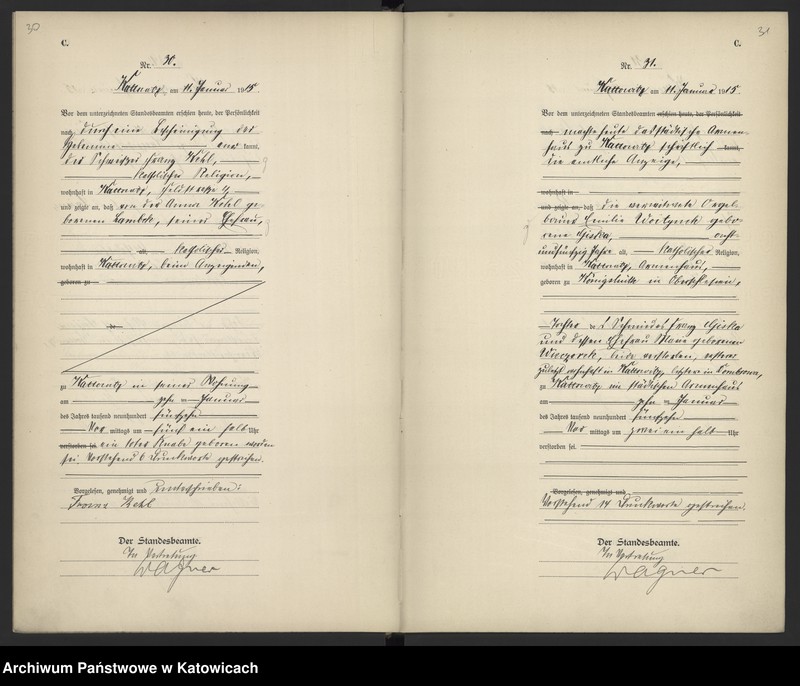 30
C.
Nr. 30.
Kattowitz am 11. Januar 1915
Vor dem unterzeichneten Standesbeamten erschien heute, der Persönlichkeit
nach durch eine Bescheinigung der
Hebamme anerkannt,
der Schweißer Franz Kohl,
katholischer Religion,
wohnhaft in Kattowitz,
und zeigte an, daß von der Anna Kohl ge-
borenen seiner Ehefrau,
alt, katholischer Religion,
wohnhaft in Kattowitz, beim Anzeigenden,
geboren zu
de
zu Kattowitz in seiner Wohnung
am zehnten Januar
des Jahres tausend neunhundert fünfzehn
Vor mittags um fünf ein halb Uhr
verstorben sei ein toter Knabe geboren worden
sei. Vorstehend 6 Druckworte gestrichen.
Vorgelesen, genehmigt und unterschrieben:
Franz
Der Standesbeamte.
In Vertretung
Wagner
31
C.
Nr. 31.
Kattowitz am 11. Januar 1915
Vor dem unterzeichneten Standesbeamten erschien heute, der Persönlichkeit
nach machte heute das städtische Armen-
haus zu Kattowitz schriftlich kannt,
die amtliche Anzeige,
wohnhaft in
und zeigte an, daß die verwitwete
Emilie gebo-
rene Giska, acht-
undfünfzig Jahre alt, katholischer Religion,
wohnhaft in Kattowitz, Armenhaus,
geboren zu Königshütte in Oberschlesien,
Tochter des Schmiedes Franz Giska
und dessen Ehefrau Marie geborenen
Wieczorek, beide verstorben, ersterer
zuletzt wohnhaft in Kattowitz, letztere in
zu Kattowitz im städtischen Armenhaus
am zehnten Januar
des Jahres tausend neunhundert fünfzehn
Vor mittags um zwei ein halb Uhr
verstorben sei.
Vorgelesen, genehmigt und
Vorstehend 14 Druckworte gestrichen.
Der Standesbeamte.
In Vertretung
Wagner
Archiwum Państwowe w Katowicach